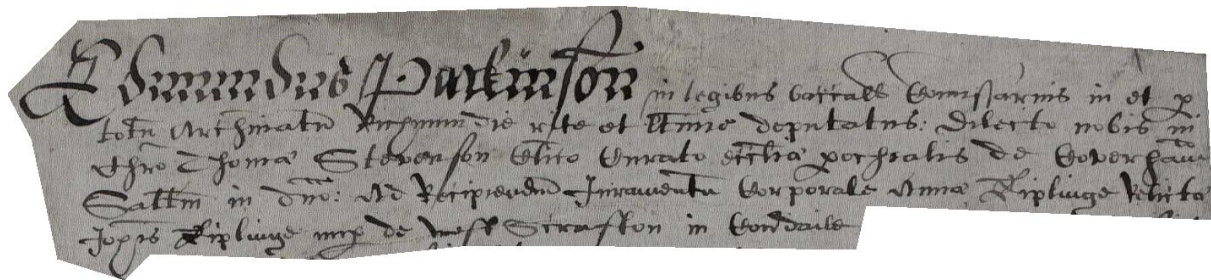 Edmundus Parkinson in legibus baccals Comissarius in et p
totu Archinatu Richmundie rite et ltime deputatus: Dilecto nobis in
Chro Thome Stevenson Clico Curato ecclie pochialis de Coverham
Saltm in dno: Ad Recipiendu Juramentu Corporale Anne Riplinge Relicte
Johis Riplinge nup de West Scrafton in Coverdaile